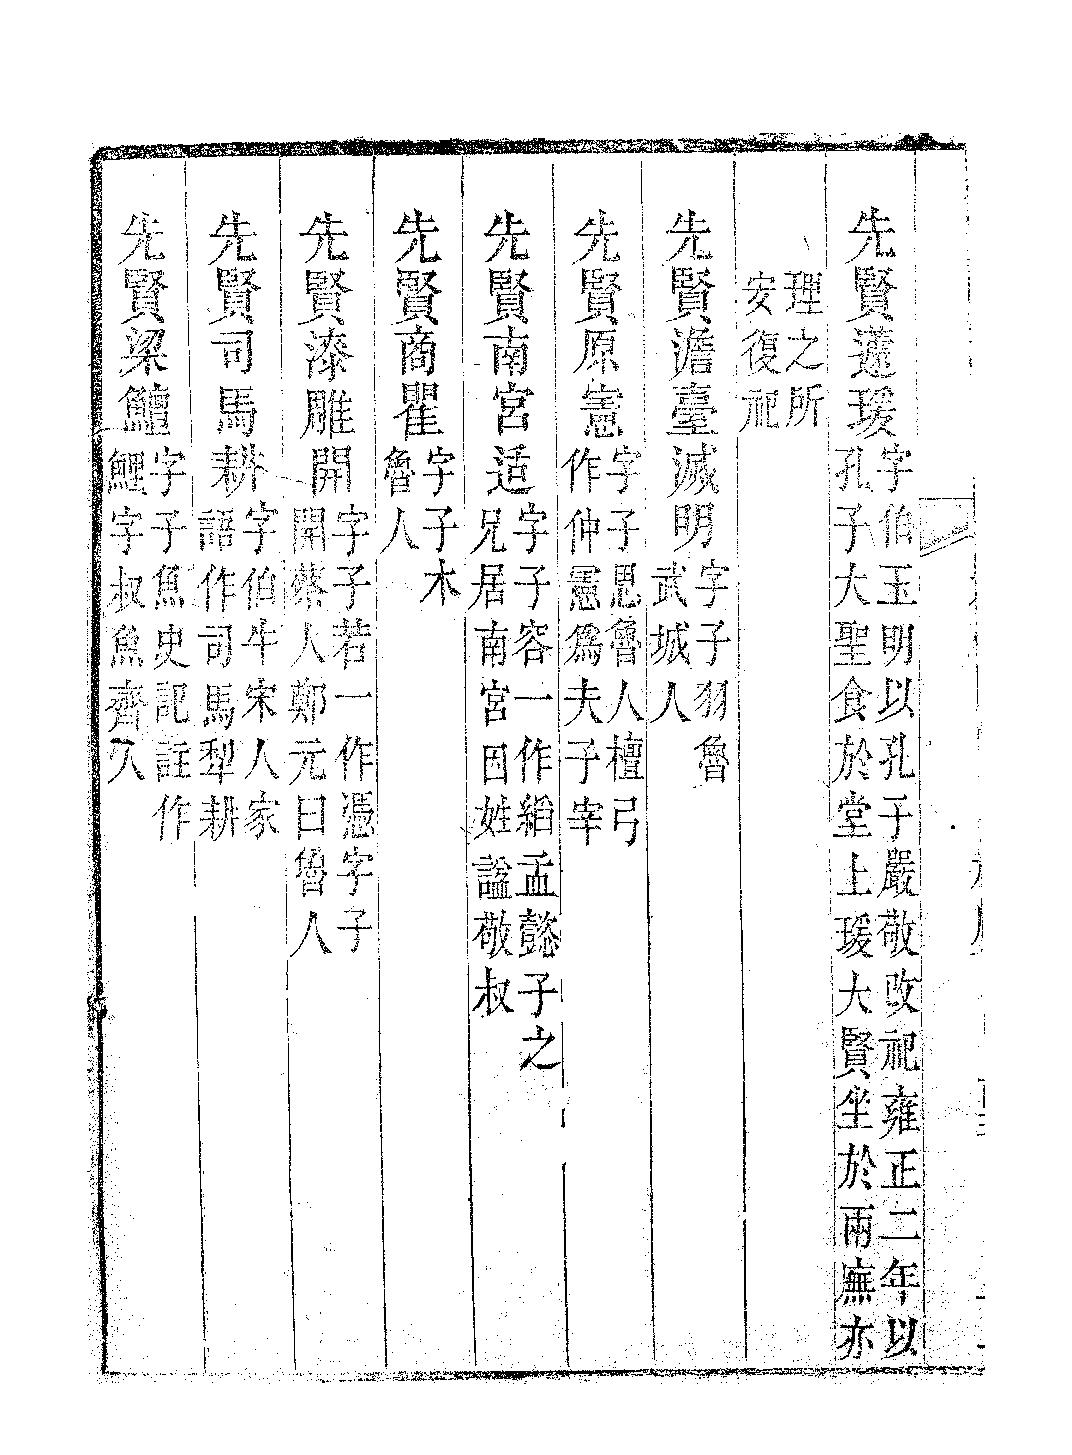 先賢蘧瑗字伯玉明以孔子嚴敬改祀雍正二年以孔子大聖食於堂上瑗大賢坐於兩廡亦
理之所安復祀
先賢澹臺滅明字子羽魯武城人
先賢原憲字子思魯人檀弓作仲憲爲夫子宰
先賢南宮适字子容一作縚孟懿子之兄居南宮因姓諡敬叔
先賢商瞿字子木魯人
先賢漆雕開字子若一作憑字子開蔡人鄭元曰魯人
先賢司馬耕字伯牛宋人家語作司馬犁耕
先賢梁鱣字子魚史記註作鯉字叔魚齊人